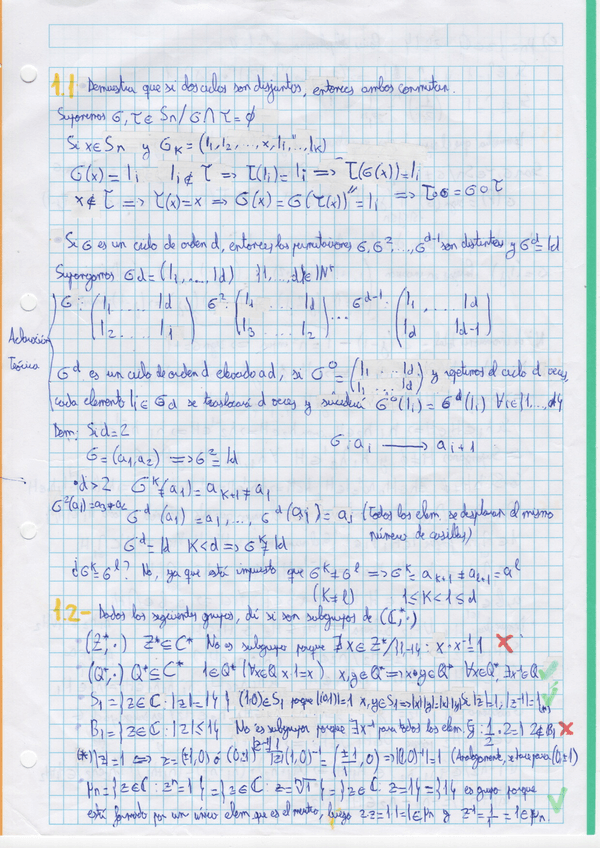 1.1 Demuestra que si dos ciclos son disjuntos, entonces ambos conmutan.
Suponemos σ, τ ∈ Sn / σ ∩ τ = ∅
Si x ∈ Sn y σk = (l1, l2, ..., x, li, ..., lk)
σ(x) = li li ∉ τ ⇒ τ(li) = li ⇒ τ(σ(x)) = li
x ∉ τ ⇒ τ(x) = x ⇒ σ(x) = σ(τ(x)) = li ⇒ τ∘σ = σ∘τ
Si σ es un ciclo de orden d, entonces las permutaciones σ, σ², ..., σ^d-1 son distintas y σ^d = Id
Supongamos σd = (l1, ..., ld) {1, ..., d} ∈ IN*
σ: (l1 ... ld σ²: (l1 ... ld ... σ^d-1: (l1, ... ld
l2 ... l1) l3 ... l2) ld ld-1)
Aclaración
Teórica
σ^d es un ciclo de orden d elevado a d, si σ^0 = (l1 ... ld / l1 ... ld) y repetimos el ciclo d veces,
cada elemento li ∈ σd se traslocará d veces y sucederá σ^0(li) = σ^d(li) ∀i∈{1, ..., d}
Dem: Si d=2
σ: ai ⟶ ai+1
σ = (a1, a2) ⇒ σ² = Id
• d>2 σ^k(a1) = ak+1 ≠ a1
σ²(a1) = a3 ≠ a2
σ^d (a1) = a1, ..., σ^d(ai) = ai (Todos los elem. se desplazan el mismo
número de casillas)
σ^d = Id k<d ⇒ σ^k ≠ Id
¿σ^k = σ^l? No, ya que está impuesto que σ^k ≠ σ^l ⇒ σ^k = ak+1 ≠ al+1 = a^l
(k≠l) 1≤k<l≤d
1.2- Dados los siguientes grupos, dí si son subgrupos de (ℂ*, ·)
(Z*, ·) Z* ⊆ C* No es subgrupo porque ∄ x ∈ Z* / {1,-1} : x · x⁻¹ = 1 ✗
(Q*, ·) Q* ⊆ C* 1∈Q* (∀x∈Q x·1=x) x,y∈Q* ⇒ x·y∈Q* ∀x∈Q*, ∃x⁻¹∈Q ✓
S1 = {z∈ℂ : |z|=1} (1,0)∈S1 porque |(1,0)|=1 x,y∈S1 ⇒ |x||y|=|x·y| Si |z|=1, |z⁻¹|=1 (*) ✓
B1 = {z∈ℂ : |z|≤1} No es subgrupo porque ∄x⁻¹ para todos los elem. Ej: 1/2 · 2 = 1 2∉B1 ✗
(*) |z|=1 ⟺ z=(±1,0) ó (0,±1) (1,0)⁻¹ = (±1/1, 0) ⇒ |(1,0)⁻¹|=1 (Análogamente, para (0,±1)
μn = {z∈ℂ : zⁿ=1} = {z∈ℂ : z=ⁿ√1} = {z∈ℂ z=1} = {1} es grupo porque
está formado por un único elem que es el neutro, luego z·z=1·1=1∈μn y z⁻¹=1/1=1∈μn. ✓